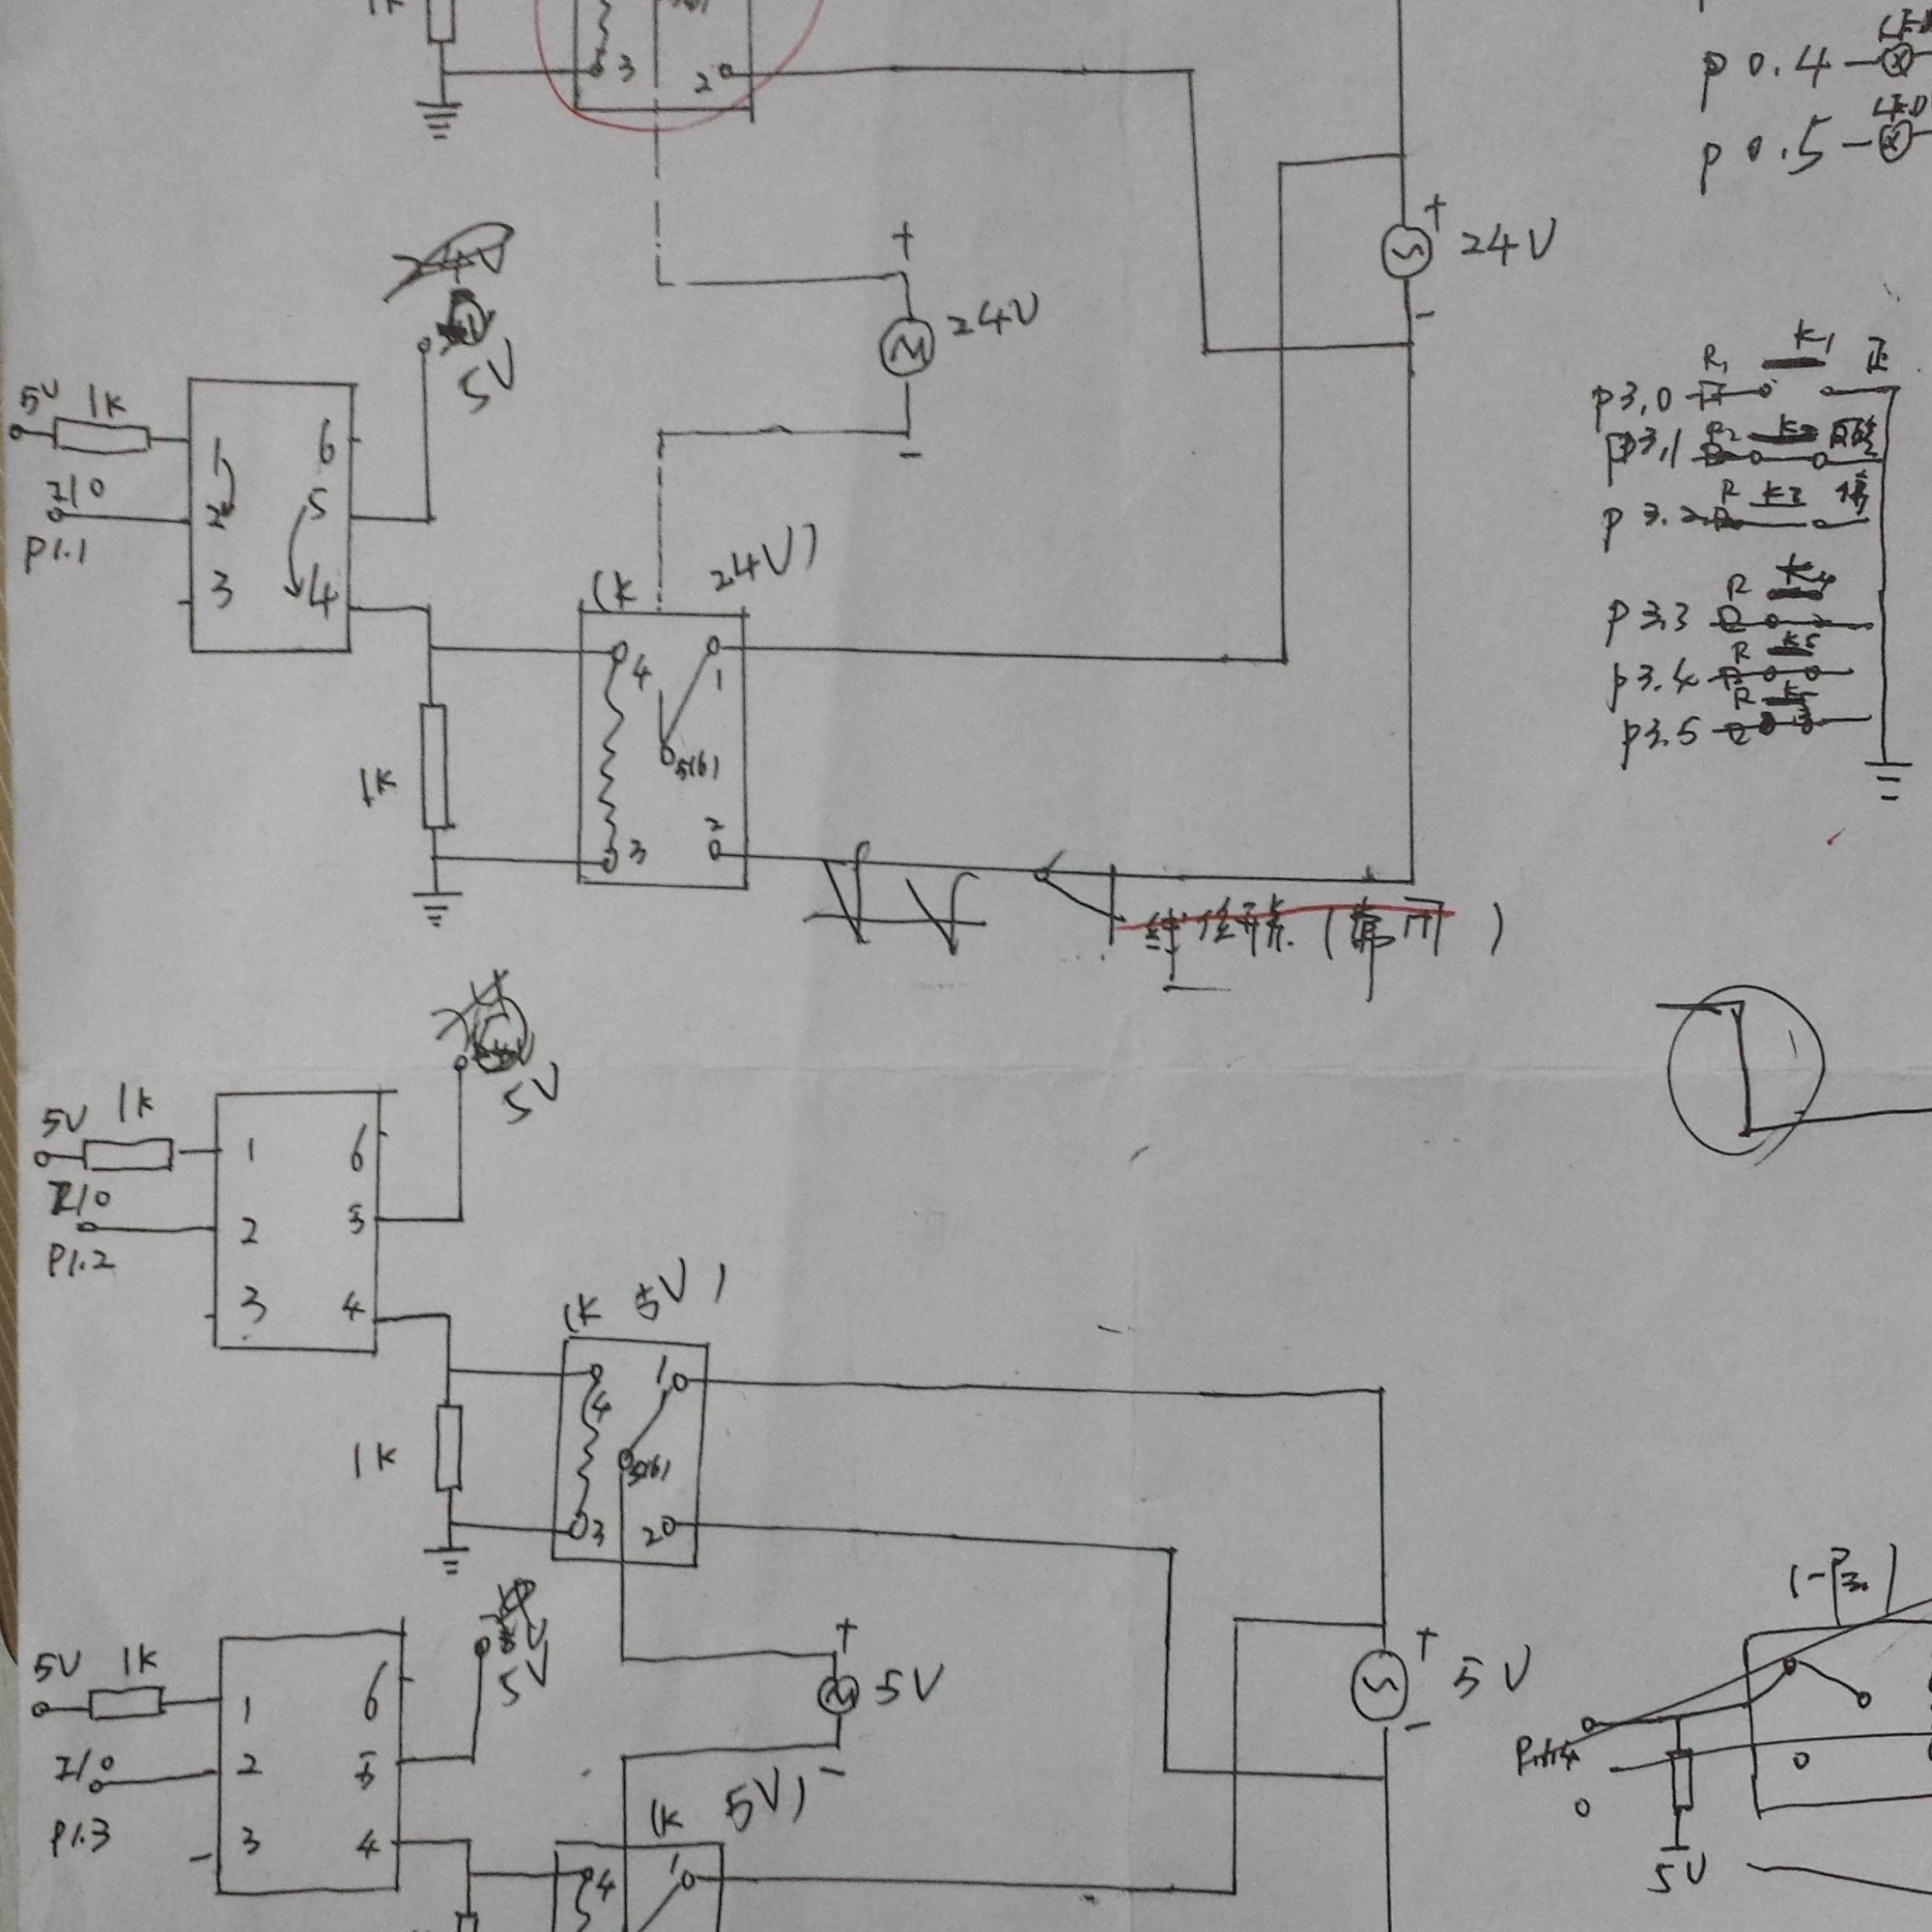 1K
3 2
P 0.4 LED
P 0.5 LED
+
24V
-
+
24V
-
24V
5V
5V 1K
I/O
P1.1
1 6
2 5
3 4
(K 24V)
4 1
5(6)
3 2
1K
R1 K1 正
P3.0
P3.1
R K3 停
P3.2
R
P3.3
R K5
P3.4
R
P3.5
5V
5V 1K
I/O
P1.2
1 6
2 5
3 4
(K 5V)
4 1
5(6)
3 2
1K
+
5V
-
+
5V
-
5V
5V 1K
I/O
P1.3
1 6
2 5
3 4
(K 5V)
4 1
5V